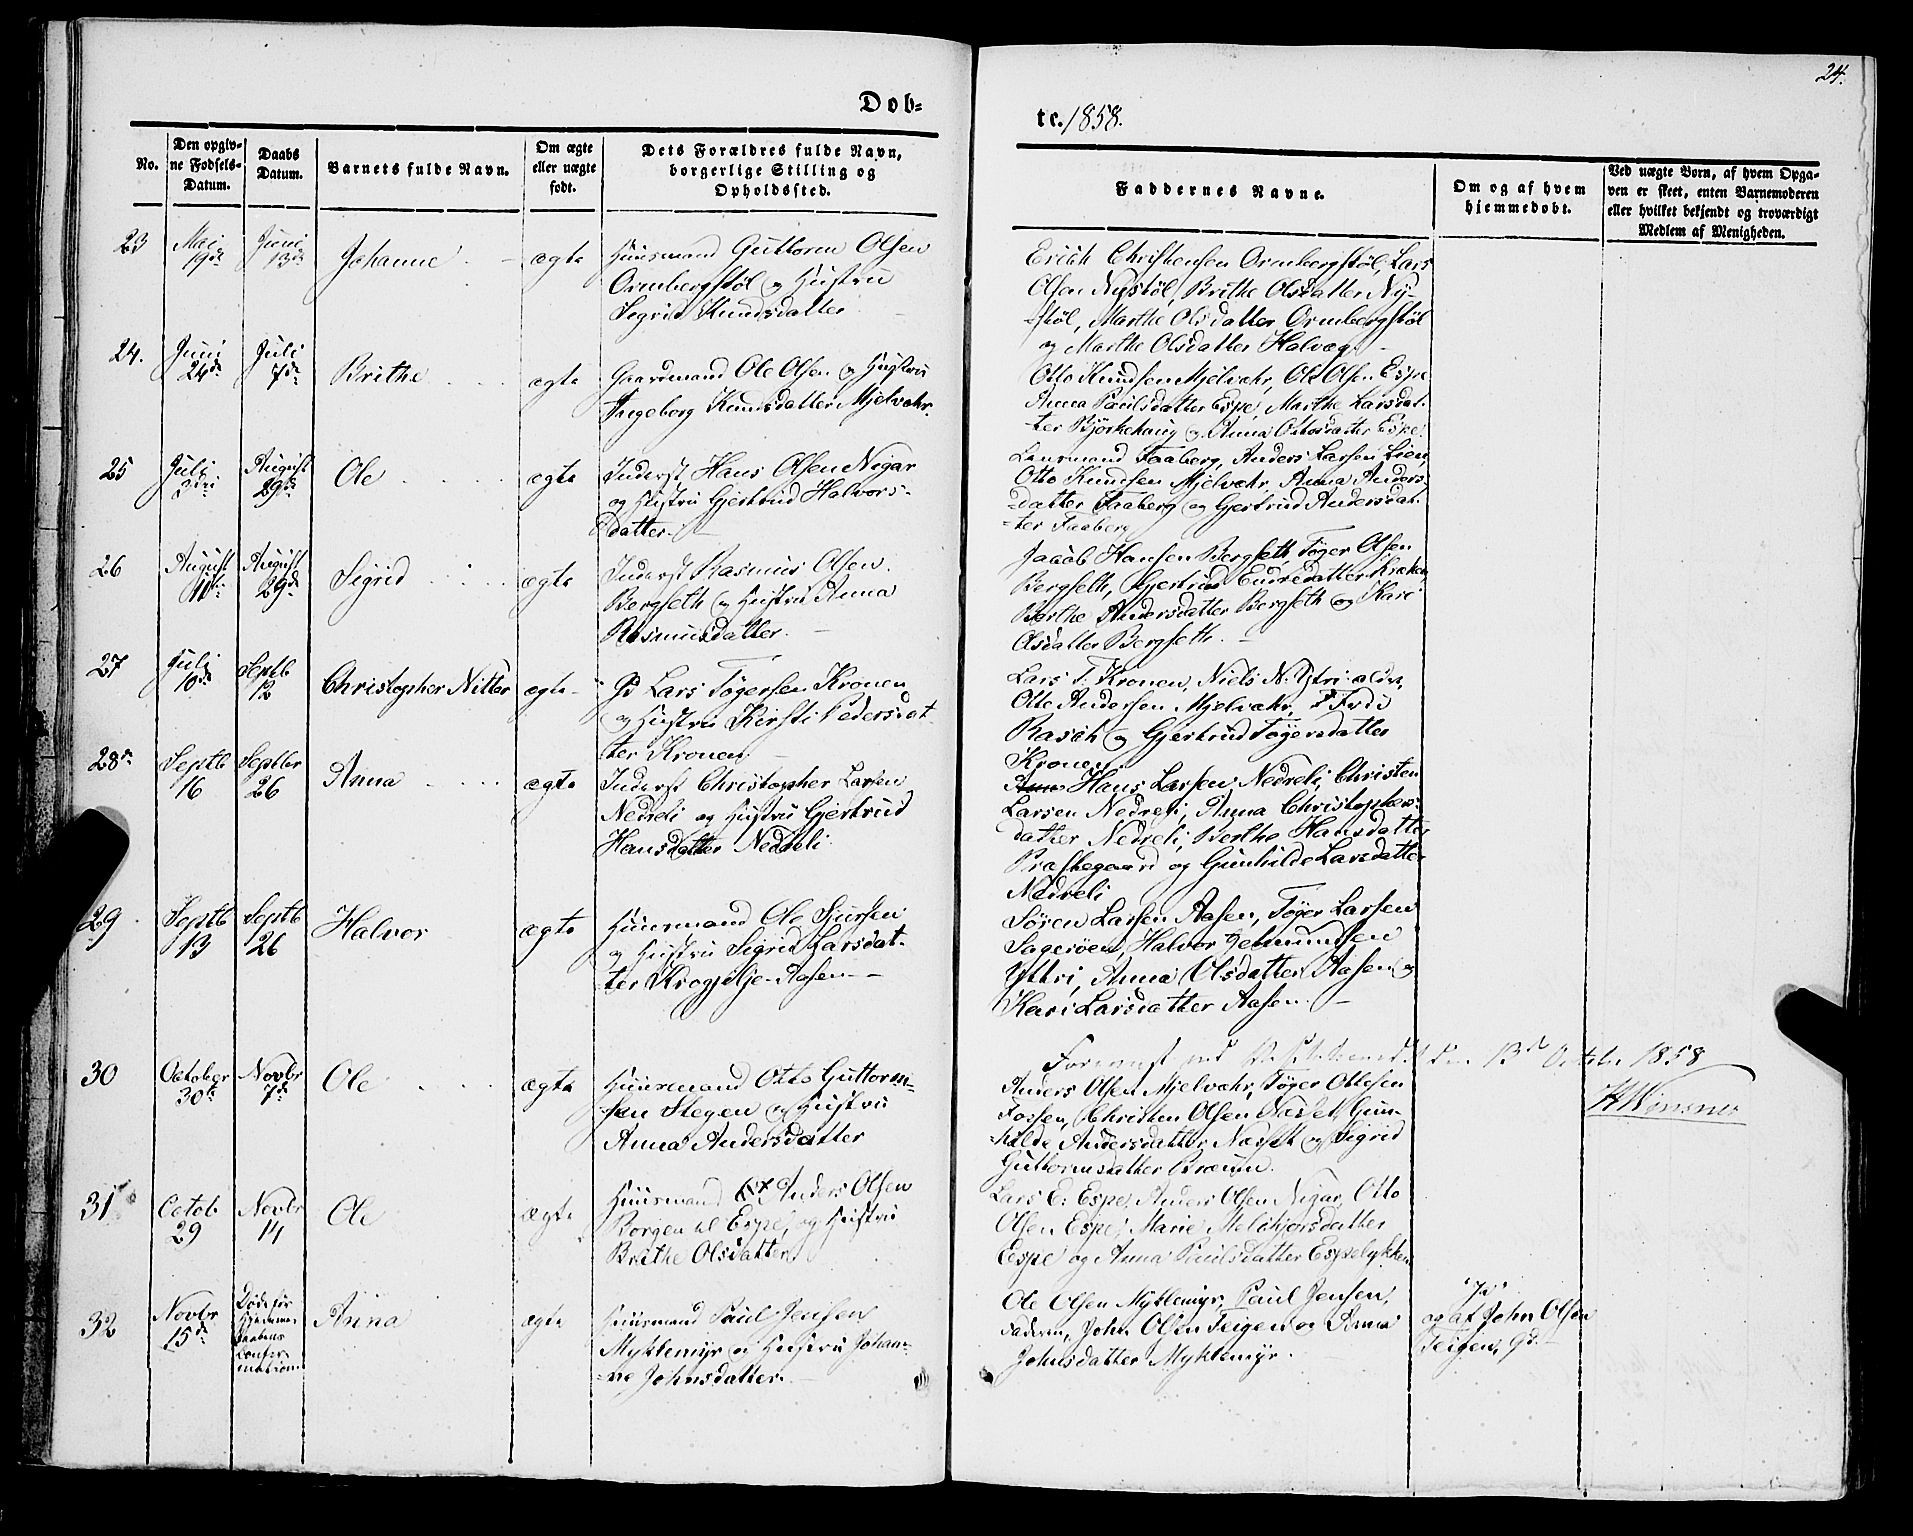 24.
Døb=
te. 1858.
No.
Den opgiv-
ne Fødsels-
Datum.
Daabs
Datum.
Barnets fulde Navn.
Om ægte
eller uægte
født.
Dets Forældres fulde Navn,
borgerlige Stilling og
Opholdssted.
Faddernes Navne.
Om og af hvem
hjemmedøbt.
Ved uægte Børn, af hvem Opga-
ven er skeet, enten Barnemoderen
eller hvilket bekjendt og troværdigt
Medlem af Menigheden.
23
Mai
19de
Juni
13de
Johanne
ægte
Huusmand Guttorm Olsen
Ormbergstøl og Hustru
Sigrid Knudsdatter
Erich Christensen Ormbergstøl, Lars
Olsen Nystøl, Brithe Olsdatter Ny-
-støl, Marthe Olsdatter Ormbergstøl
og Marthe Olsdatter Halvæg.
24.
Juni
24de
Juli
7de
Brithe
ægte
Gaardmand Ole Olsen og Hustru
Ingeborg Knudsdatter Mjelvehr.
Otto Knudsen Mjelvehr, Ole Olsen Espe
Anna Paulsdatter Espe, Marthe Larsdat-
ter Bjørkehaug og Anna Ottosdatter Espe.
25
Juli
August
29de
Ole
ægte
Inderst Hans Olsen Nigar
og Hustru Gjertrud Halvors-
datter.
Lensmand Faaberg, Anders Larsen Lien,
Otto Knudsen Mjelvehr, Anna Anders-
-datter Faaberg og Gjertrud Andersdat-
-ter Faaberg
26
August
11te
August
29de
Sigrid
ægte
Inderst Rasmus Olsen
Bergseth og Hustru Anna
Rasmusdatter.
Jacob Hansen Bergseth, Tøger Olsen
Bergseth, Gjertrud Endresdatter Kræken
Berthe Andersdatter Bergseth og Kari
Olsdatter Bergseth.
27
Juli
10de
Septb
12
Christopher Nitter
ægte
Gd Lars Tøgersen Kronen
og Hustru Kirsti Pedersdat-
ter Kronen
Lars T. Kronen, Niels N. Ytri
Otto Andersen Mjelvehr,
Rasch og Gjertrud Tøgersdatter
Kronen
28de
Septb
16
Septbr
26
Anna
ægte
Inderst Christopher Larsen
Nedreli og Hustru Gjertrud
Hansdatter Nedreli.
Hans Larsen Nedreli, Christen
Larsen Nedreli, Anna Christophers-
datter Nedreli, Berthe Hansdatter
Præstegaard og Gunhilde Larsdatter
Nedreli
29
Septb
13
Septb
26
Halvor
ægte
Huusmand Ole Sjursen
og Hustru Sigrid Larsdat-
-ter Aasen
Søren Larsen Aasen, Tøger Larsen
Sagerøen, Halvor
Yttri, Anna Olsdatter Aasen og
Kari Larsdatter Aasen.
13de October 1858
30
October
30te
Novbr
7de
Ole
ægte
Huusmand Otto Guttorm-
sen Stegen og Hustru
Anna Andersdatter
Anders Olsen Mjelvehr, Tøger Ottesen
Fossen, Christen Olsen Næset, Gun-
-hilde Andersdatter Næset og Sigrid
Guttormsdatter Bruun.
31
Octob
29
Novbr
14
Ole
ægte
Huusmand Anders Olsen
Borgen til Espe, og Hustru
Brithe Olsdatter
Lars E: Espe, Anders Olsen Nigar, Otto
Olsen Espe, Marie Melchiorsdatter
Espe og Anna Paulsdatter Espelykken
32
Novbr
15de
Døde før
Hjemme-
daabens
Confir-
mation
Anna
ægte
Huusmand Paul Jensen
Myklemyr og Hustru Johan-
-ne Johnsdatter.
Ole Olsen Myklemyr, Paul Jensen,
Faderen, John Olsen Teigen og Anna
Johnsdatter Myklemyr.
Ja
og af John Olsen
Teigen, Gd.